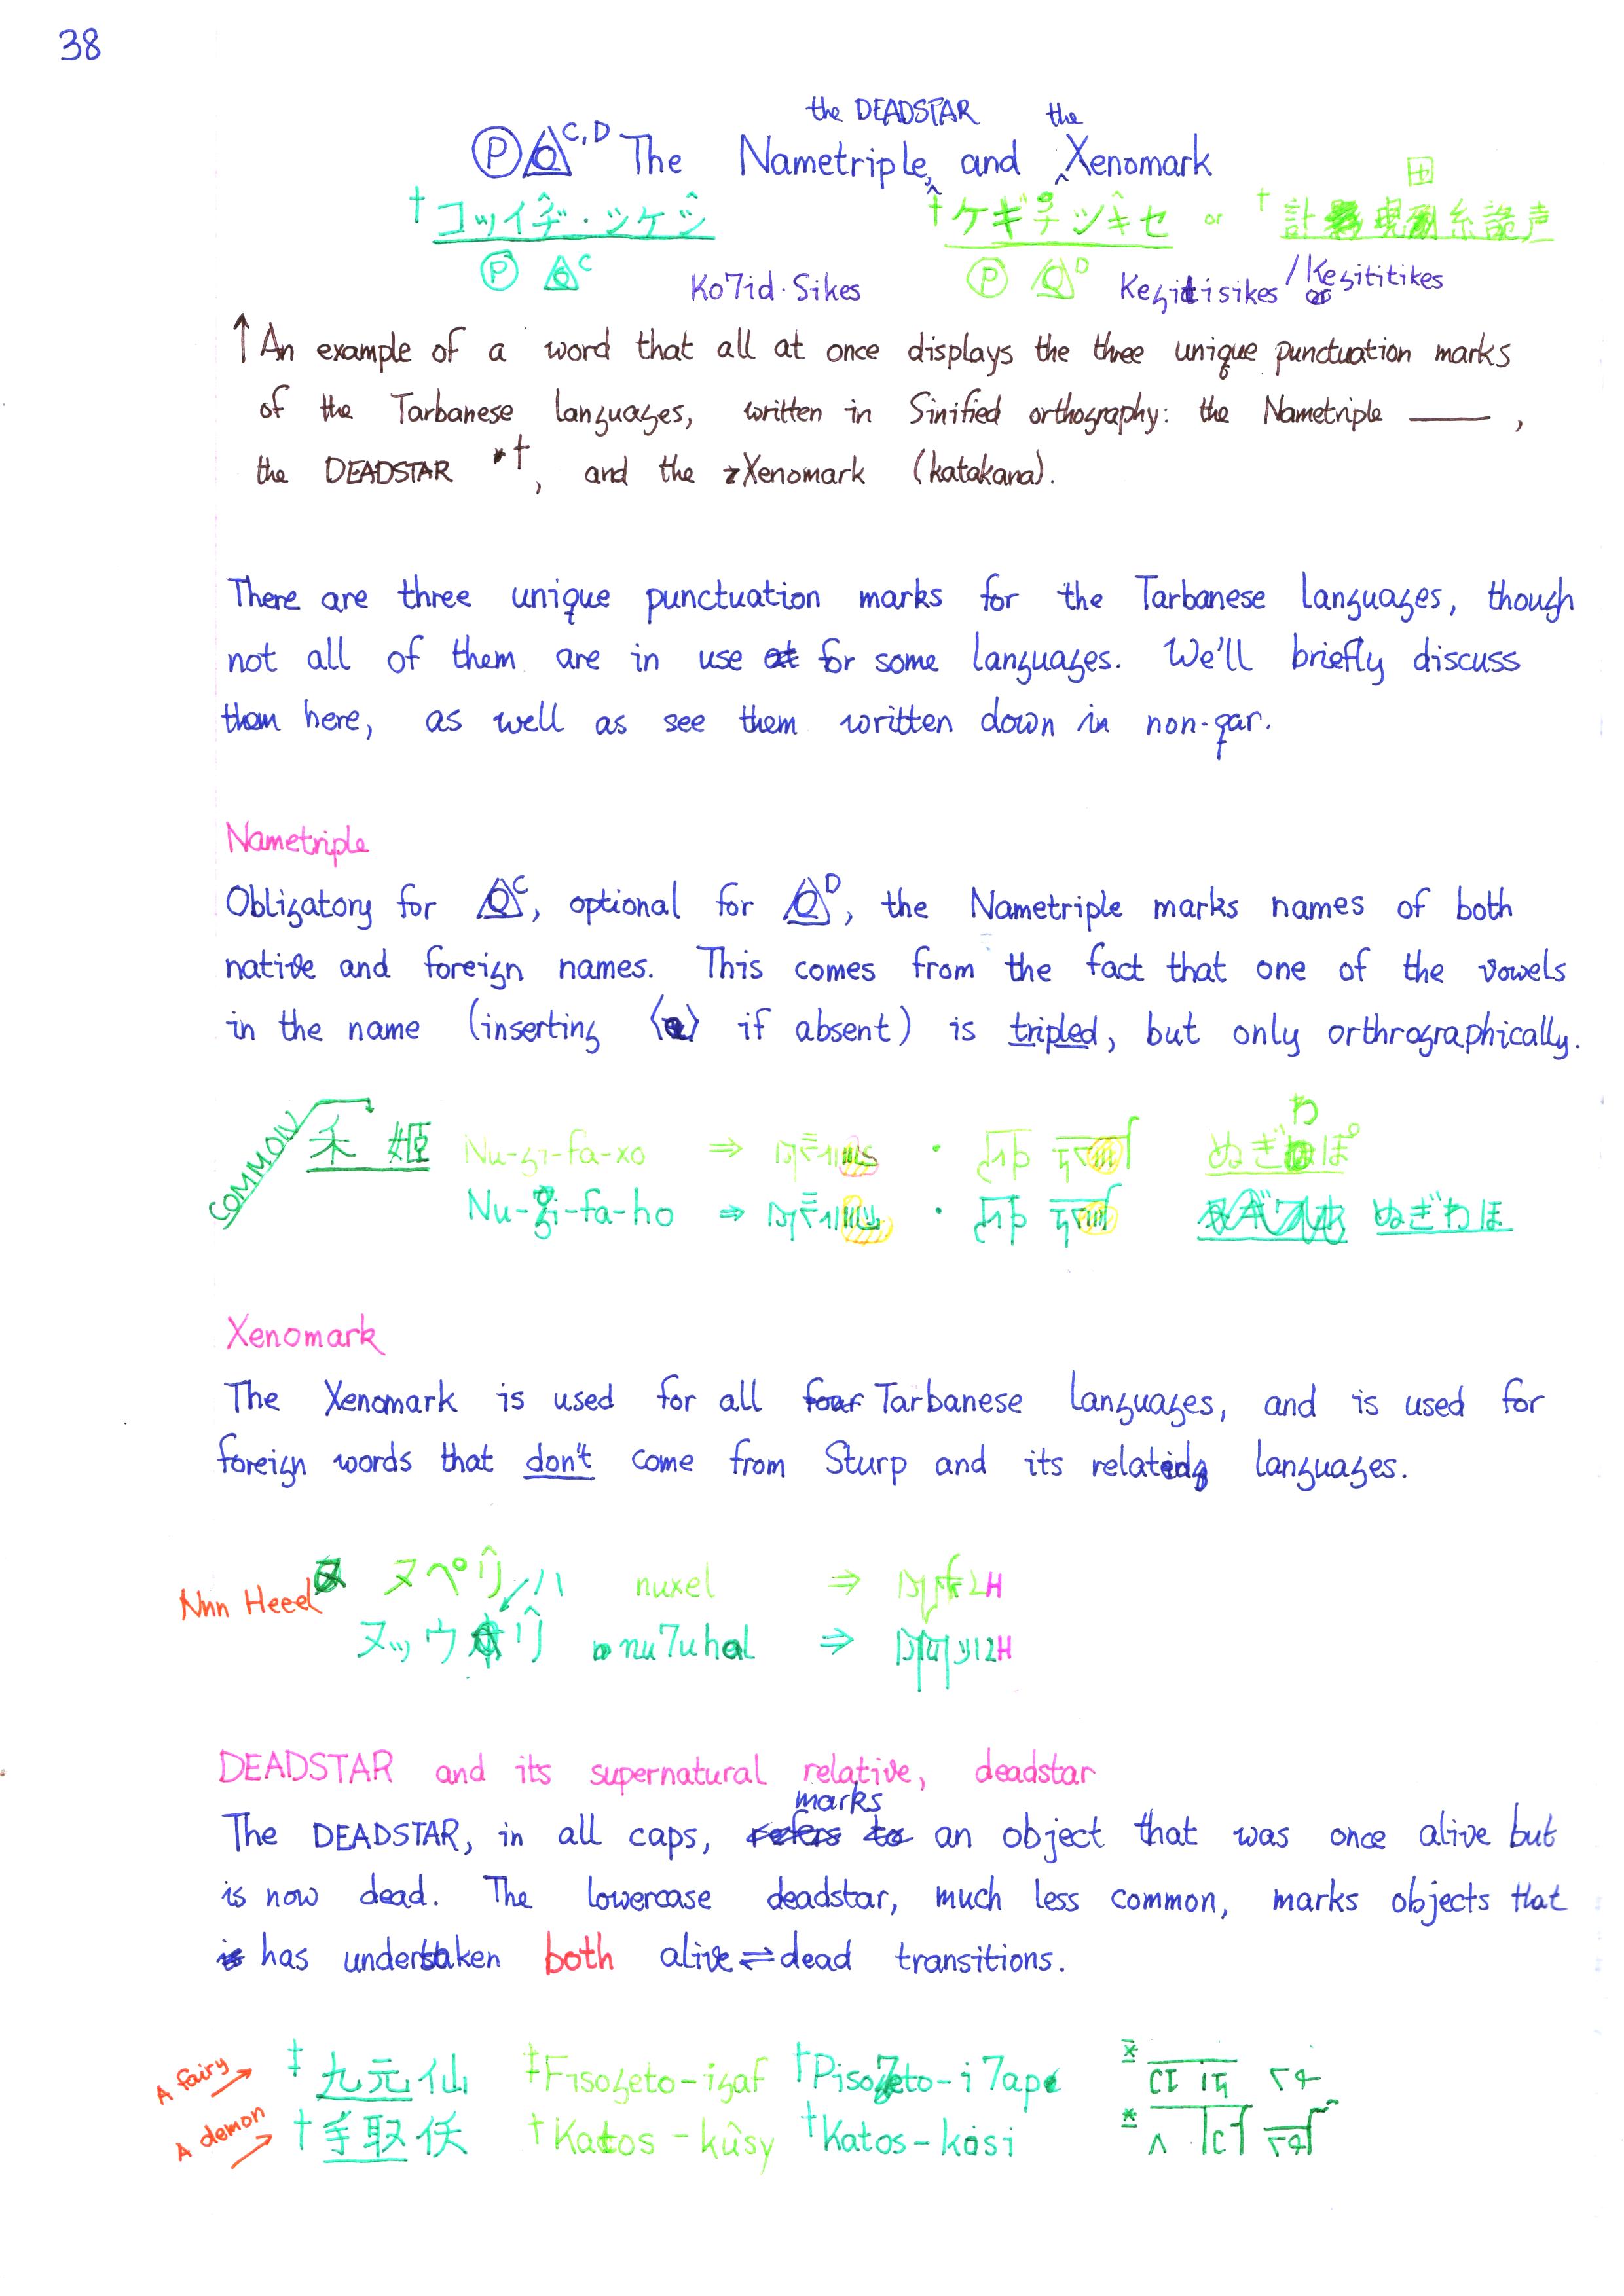 38
the DEADSTAR the
Ⓟ C, D The Nametriple, and Xenomark
†コッイヂ・ツケシ †ケギヂツキセ or †計 田 糸 声
Ⓟ C Ko7id·Sikes Ⓟ D Kegitisikes / Kegititikes
↑ An example of a word that all at once displays the three unique punctuation marks
of the Tarbanese languages, written in Sinified orthography: the Nametriple ——,
the DEADSTAR †, and the Xenomark (katakana).
There are three unique punctuation marks for the Tarbanese languages, though
not all of them are in use for some languages. We'll briefly discuss
them here, as well as see them written down in non-qar.
Nametriple
Obligatory for C, optional for D, the Nametriple marks names of both
native and foreign names. This comes from the fact that one of the vowels
in the name (inserting if absent) is tripled, but only orthrographically.
COMMON 禾 姫 Nu-gi-fa-xo ⇒ · ぬぎわぽ
Nu-gi-fa-ho ⇒ · ぬぎわほ
Xenomark
The Xenomark is used for all four Tarbanese languages, and is used for
foreign words that don't come from Sturp and its relating languages.
Nnn Heeel ヌペリ ハ nuxel ⇒
ヌッウ リ nu7uhal ⇒
DEADSTAR and its supernatural relative, deadstar
marks
The DEADSTAR, in all caps, refers to an object that was once alive but
is now dead. The lowercase deadstar, much less common, marks objects that
is has undertaken both alive⇌dead transitions.
A fairy → ‡九元仙 ‡Fisogeto-igaf †Piso7eto-i7ape
A demon → †手取仸 †Katos-kûsy †Katos-kosi